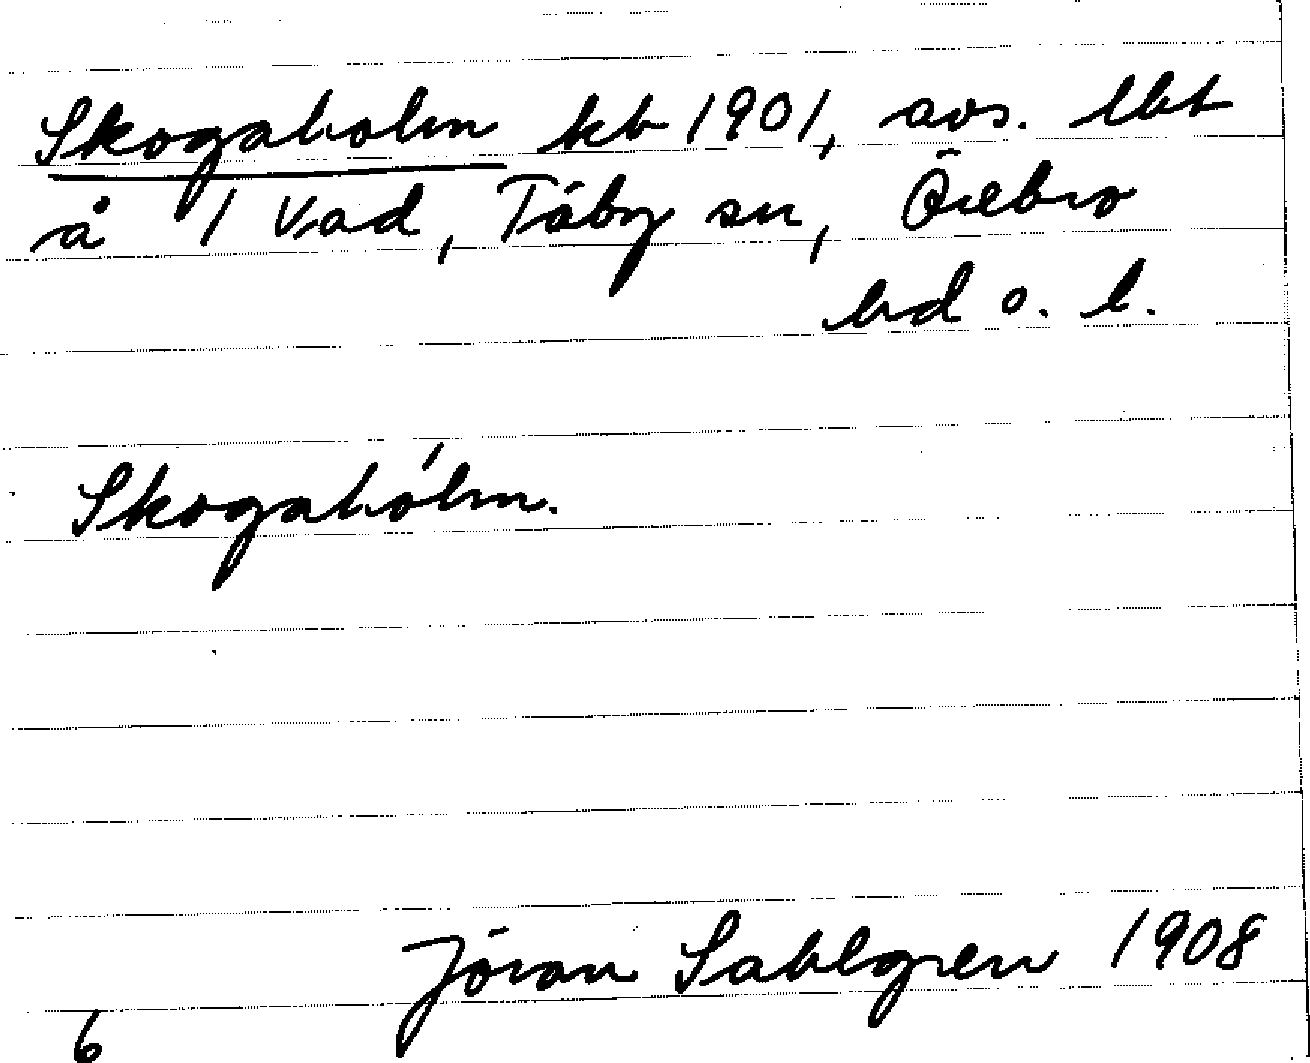 Skogaholm kb 1901, avs. lht
å 1 Vad, Täby sn, Örebro
hd o. l.
Skogahólm.
Jöran Sahlgren 1908
6